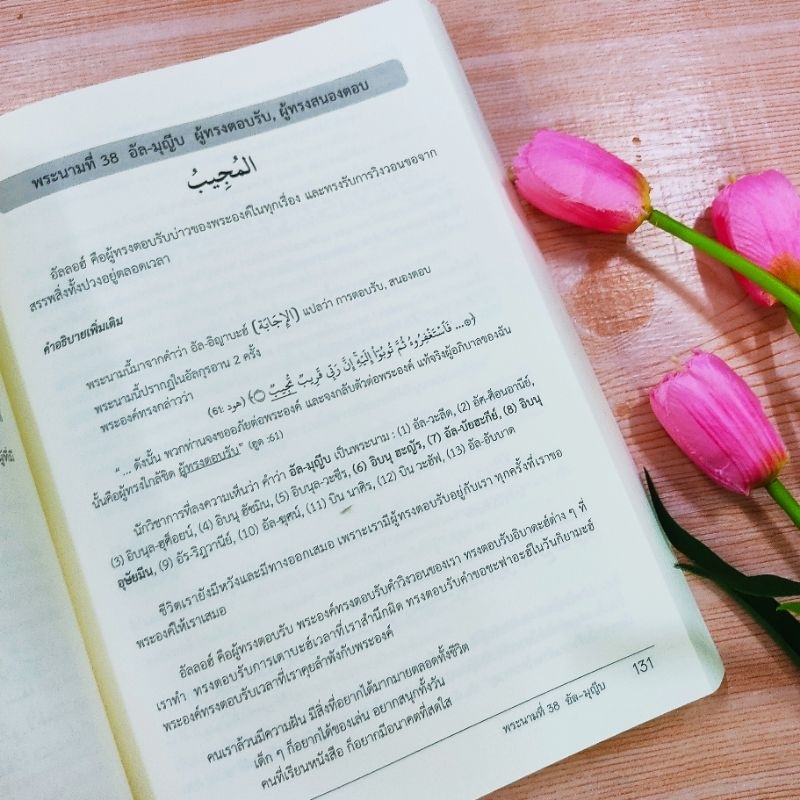 พระนามที่ 38 อัล-มุญีบ ผู้ทรงตอบรับ, ผู้ทรงสนองตอบ
المُجِيبُ
อัลลอฮ์ คือผู้ทรงตอบรับบ่าวของพระองค์ในทุกเรื่อง และทรงรับการวิงวอนขอจาก
สรรพสิ่งทั้งปวงอยู่ตลอดเวลา
คำอธิบายเพิ่มเติม
พระนามนี้มาจากคำว่า อัล-อิญาบะฮ์ (الإِجَابَة) แปลว่า การตอบรับ, สนองตอบ
พระนามนี้ปรากฏในอัลกุรอาน 2 ครั้ง
พระองค์ทรงกล่าวว่า
﴿... فَاسْتَغْفِرُوهُ ثُمَّ تُوبُوا إِلَيْهِ إِنَّ رَبِّي قَرِيبٌ مُّجِيبٌ ۝﴾ (هود :61)
“ ... ดังนั้น พวกท่านจงขออภัยต่อพระองค์ และจงกลับตัวต่อพระองค์ แท้จริงผู้อภิบาลของฉัน
นั้นคือผู้ทรงใกล้ชิด ผู้ทรงตอบรับ” (ฮูด :61)
นักวิชาการที่ลงความเห็นว่า คำว่า อัล-มุญีบ เป็นพระนาม : (1) อัล-วะลีด, (2) อัศ-ศ็อนอานีย์,
(3) อิบนุล-ฮุศ็อยน์, (4) อิบนุ ฮัซมิน, (5) อิบนุล-วะซีร, (6) อิบนุ ฮะญัร, (7) อัล-บัยฮะกีย์, (8) อิบนุ
อุษัยมีน, (9) อัร-ริฎวานีย์, (10) อัล-ฆุศน์, (11) บิน นาศิร, (12) บิน วะฮัฟ, (13) อัล-อับบาด
ชีวิตเรายังมีหวังและมีทางออกเสมอ เพราะเรามีผู้ทรงตอบรับอยู่กับเรา ทุกครั้งที่เราขอ
พระองค์ให้เราเสมอ
อัลลอฮ์ คือผู้ทรงตอบรับ พระองค์ทรงตอบรับคำวิงวอนของเรา ทรงตอบรับอิบาดะฮ์ต่าง ๆ ที่
เราทำ ทรงตอบรับการเตาบะฮ์เวลาที่เราสำนึกผิด ทรงตอบรับคำขอชะฟาอะฮ์ในวันกิยามะฮ์
พระองค์ทรงตอบรับเวลาที่เราคุยลำพังกับพระองค์
คนเราล้วนมีความฝัน มีสิ่งที่อยากได้มากมายตลอดทั้งชีวิต
เด็ก ๆ ก็อยากได้ของเล่น อยากสนุกทั้งวัน
คนที่เรียนหนังสือ ก็อยากมีอนาคตที่สดใส
พระนามที่ 38 อัล-มุญีบ 131